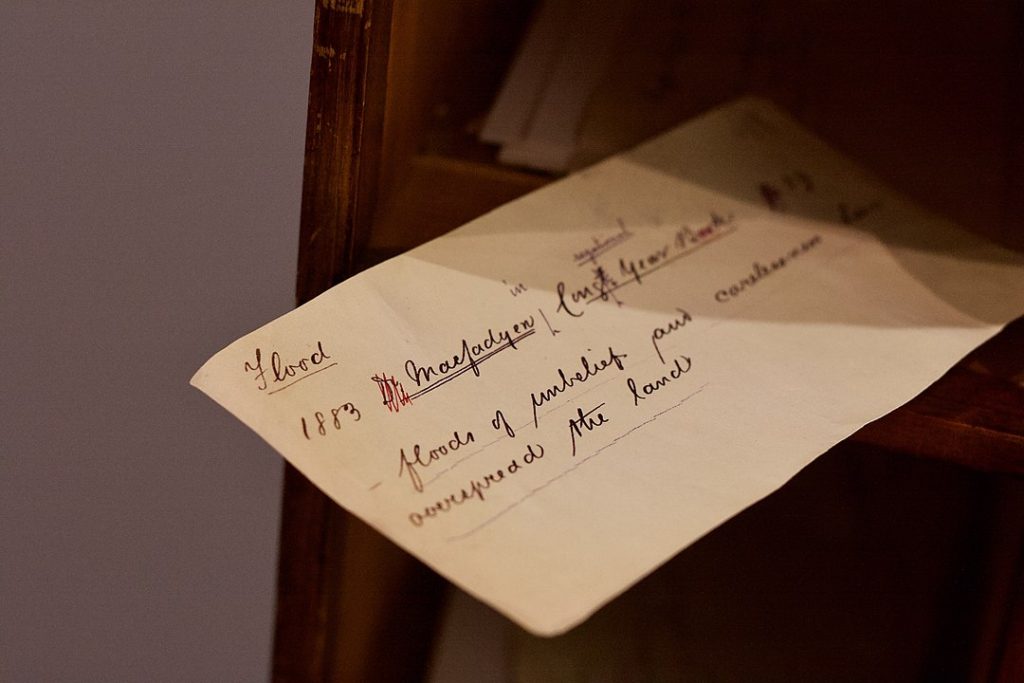 Flood
1883 Macfadyen in Congl Year Book p 13
floods of unbelief and carelessness have
overspread the land